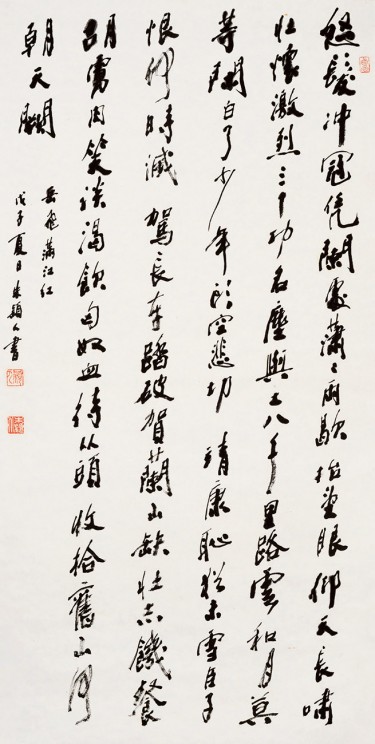 怒髮冲冠凭闌處瀟々雨歇抬望眼仰天長嘯
壯懷激烈三十功名塵與土八千里路雲和月莫
等閑白了少年頭空悲切 靖康恥猶未雪臣子
恨何時滅 駕長車踏破賀蘭山缺壯志饑餐
胡虜肉笑談渴飲匈奴血待从頭收拾舊山河
朝天闕
岳飛滿江紅
戊子夏日朱穎人書